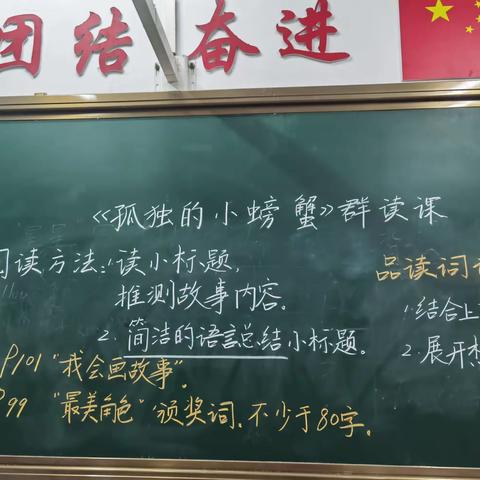 团结奋进
《孤独的小螃蟹》群读课
阅读方法:1.读小标题,
推测故事内容。
2.简洁的语言总结小标题。
P101 "我会画故事"。
P99 "最美角色"颁奖词,不少于80字。
品读词
1.结合上
2.展开想